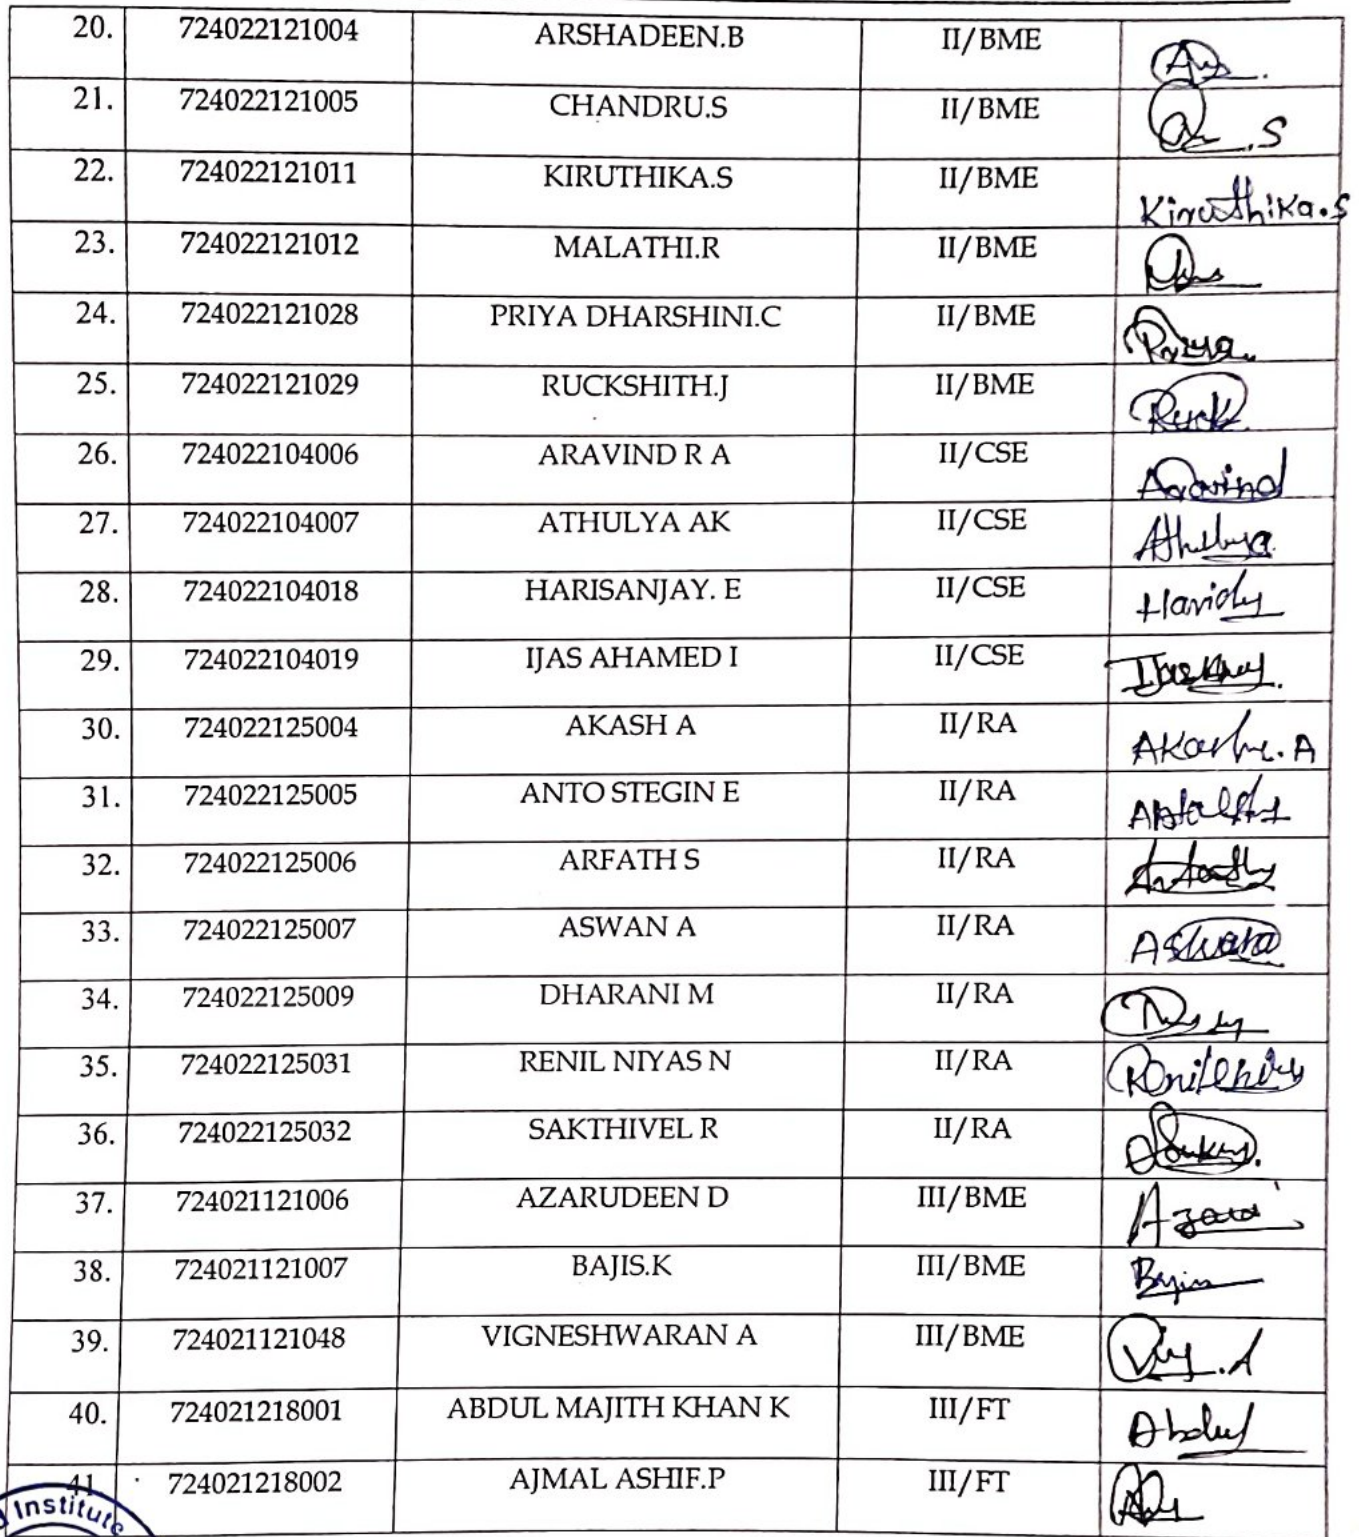 20. 724022121004 ARSHADEEN.B II/BME
21. 724022121005 CHANDRU.S II/BME .S
22. 724022121011 KIRUTHIKA.S II/BME Kiruthika.S
23. 724022121012 MALATHI.R II/BME
24. 724022121028 PRIYA DHARSHINI.C II/BME Priya.
25. 724022121029 RUCKSHITH.J II/BME Ruck
26. 724022104006 ARAVIND R A II/CSE Aravind
27. 724022104007 ATHULYA AK II/CSE Athulya
28. 724022104018 HARISANJAY. E II/CSE
29. 724022104019 IJAS AHAMED I II/CSE
30. 724022125004 AKASH A II/RA Akash.A
31. 724022125005 ANTO STEGIN E II/RA
32. 724022125006 ARFATH S II/RA
33. 724022125007 ASWAN A II/RA
34. 724022125009 DHARANI M II/RA
35. 724022125031 RENIL NIYAS N II/RA
36. 724022125032 SAKTHIVEL R II/RA
37. 724021121006 AZARUDEEN D III/BME
38. 724021121007 BAJIS.K III/BME
39. 724021121048 VIGNESHWARAN A III/BME
40. 724021218001 ABDUL MAJITH KHAN K III/FT Abdul
41 724021218002 AJMAL ASHIF.P III/FT
Institute